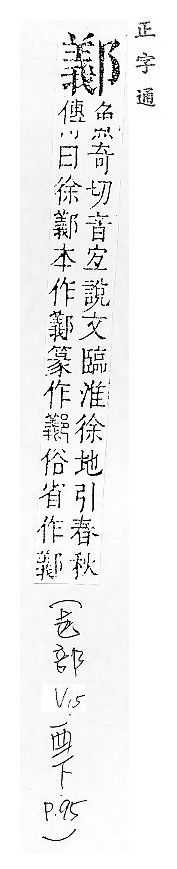 正字通
䣡
奇切音宐說文臨淮徐地引春秋
傳曰徐䣡本作䣡篆作俗省作䣡
(邑部
V.15
酉下
P.95)